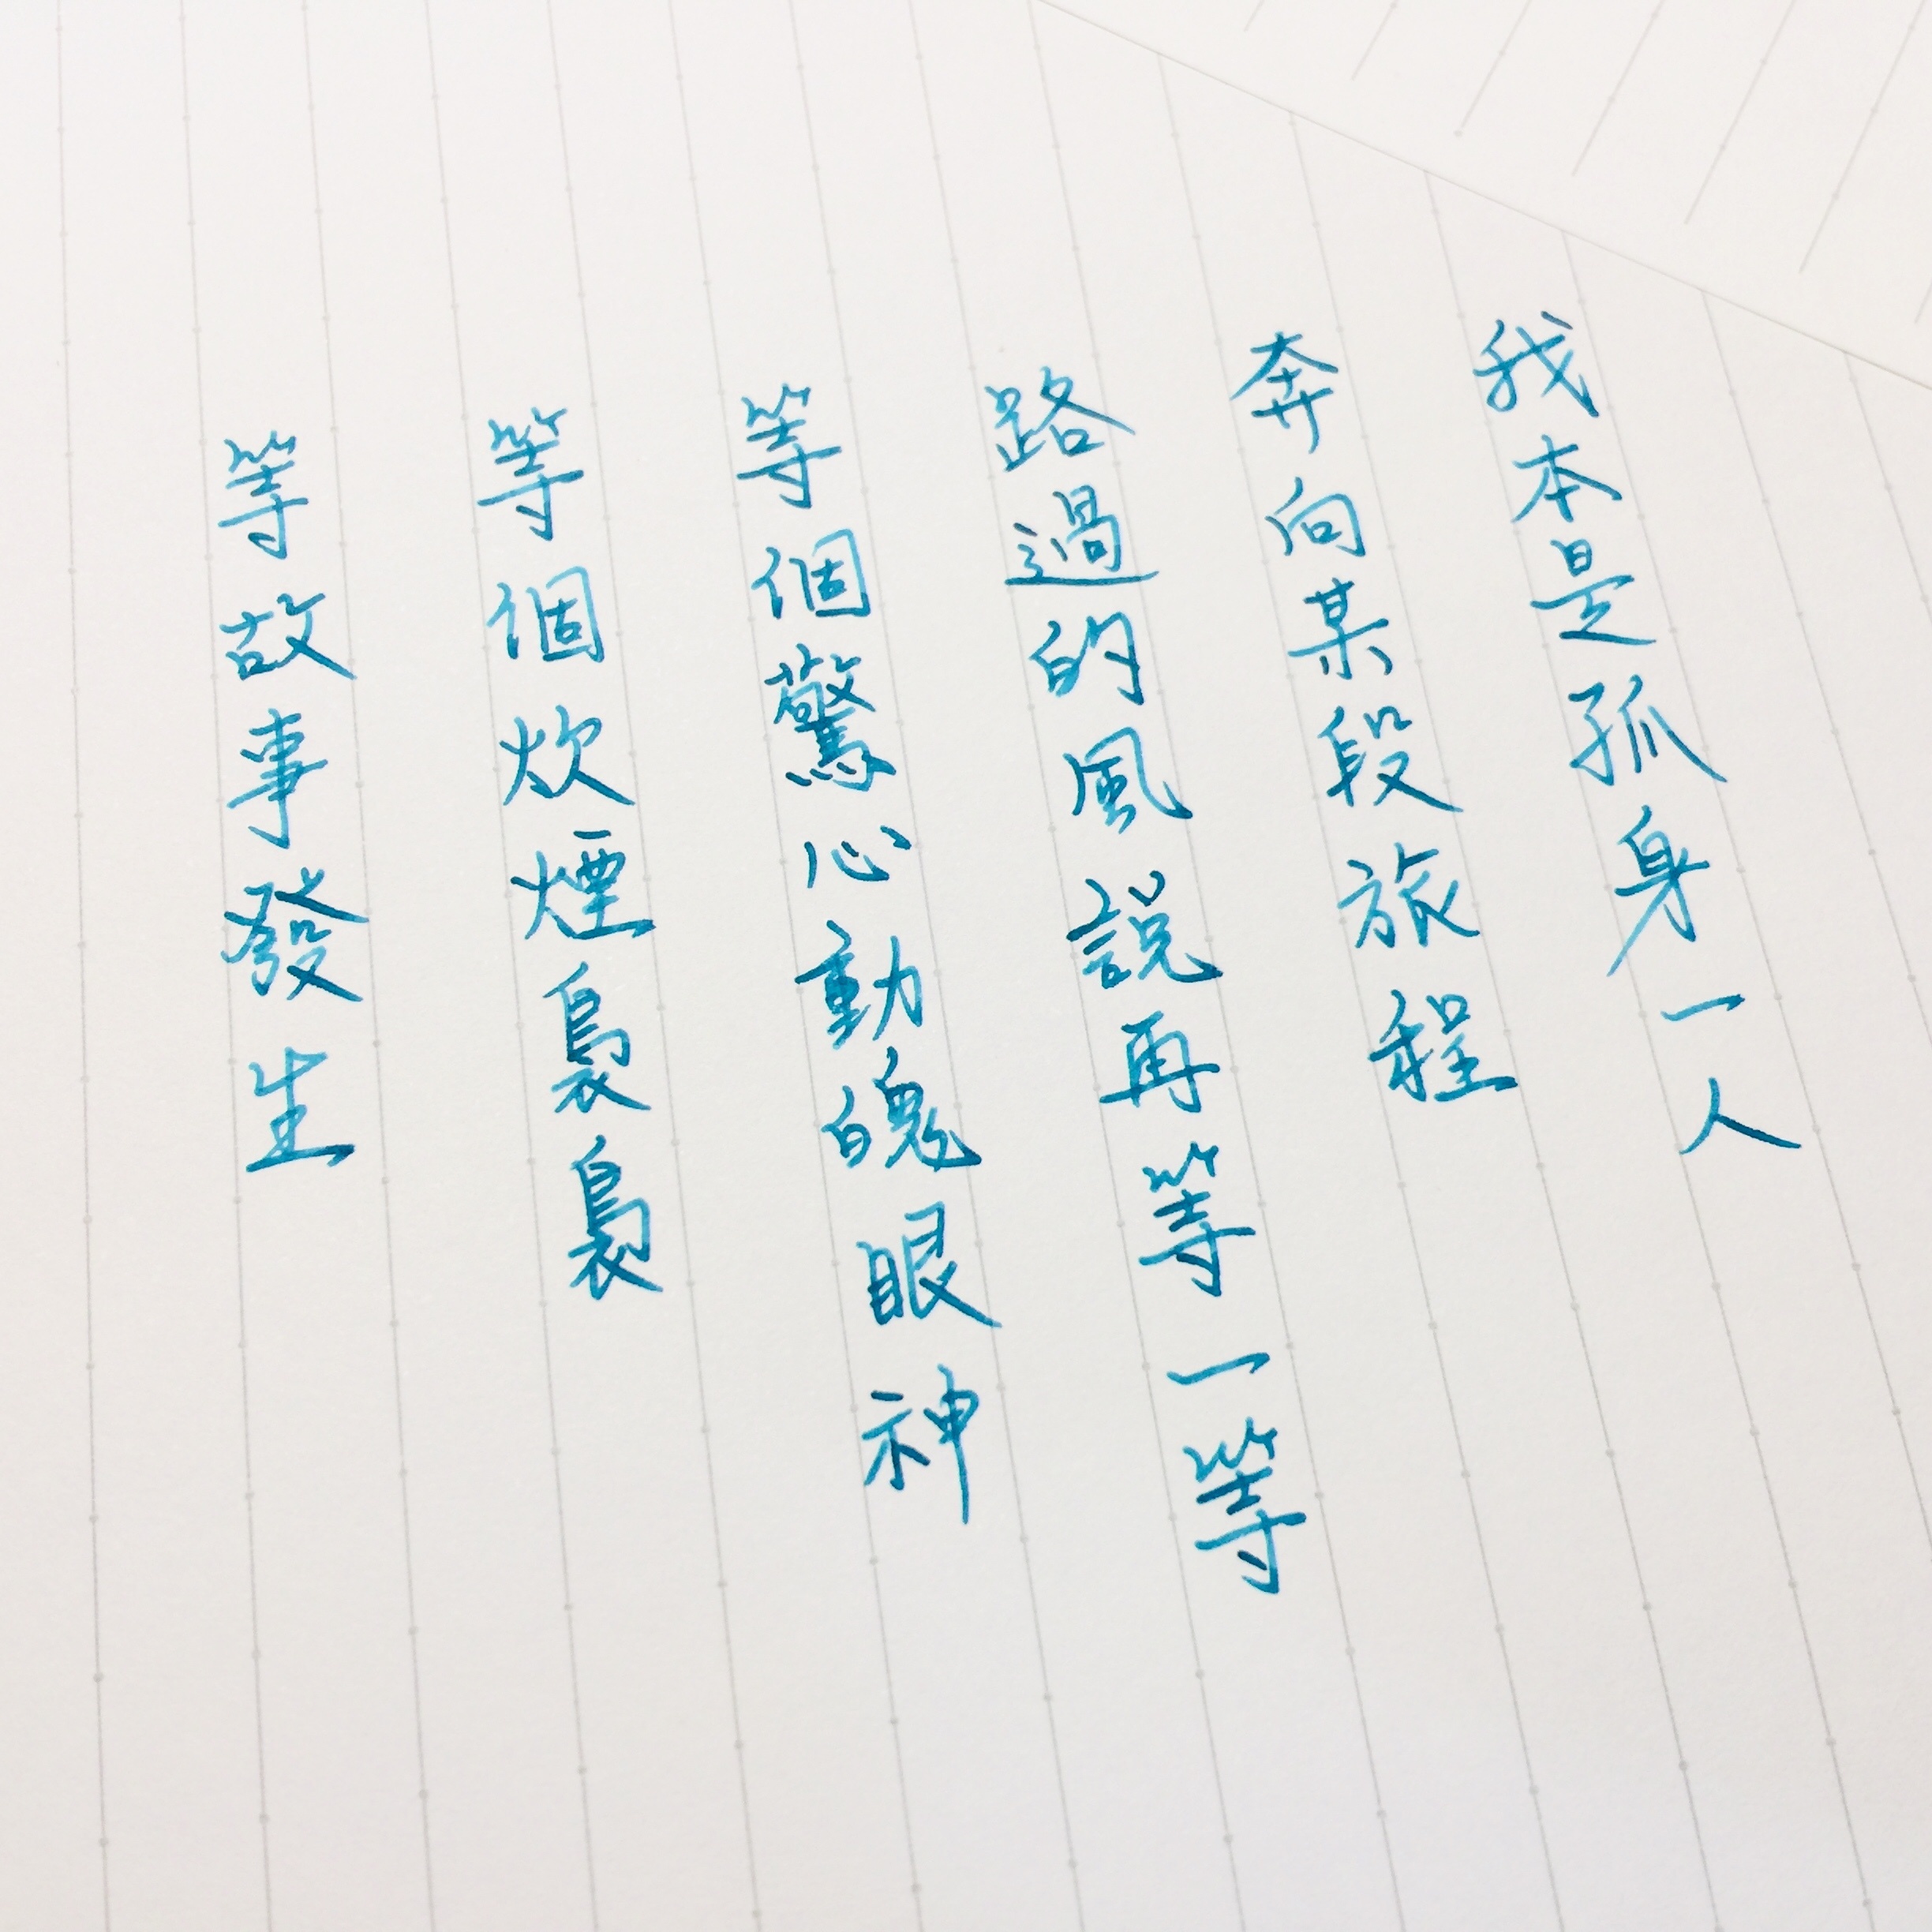 我本是孤身一人
奔向某段旅程
路過的風說再等一等
等個驚心動魄眼神
等個炊煙裊裊
等故事發生